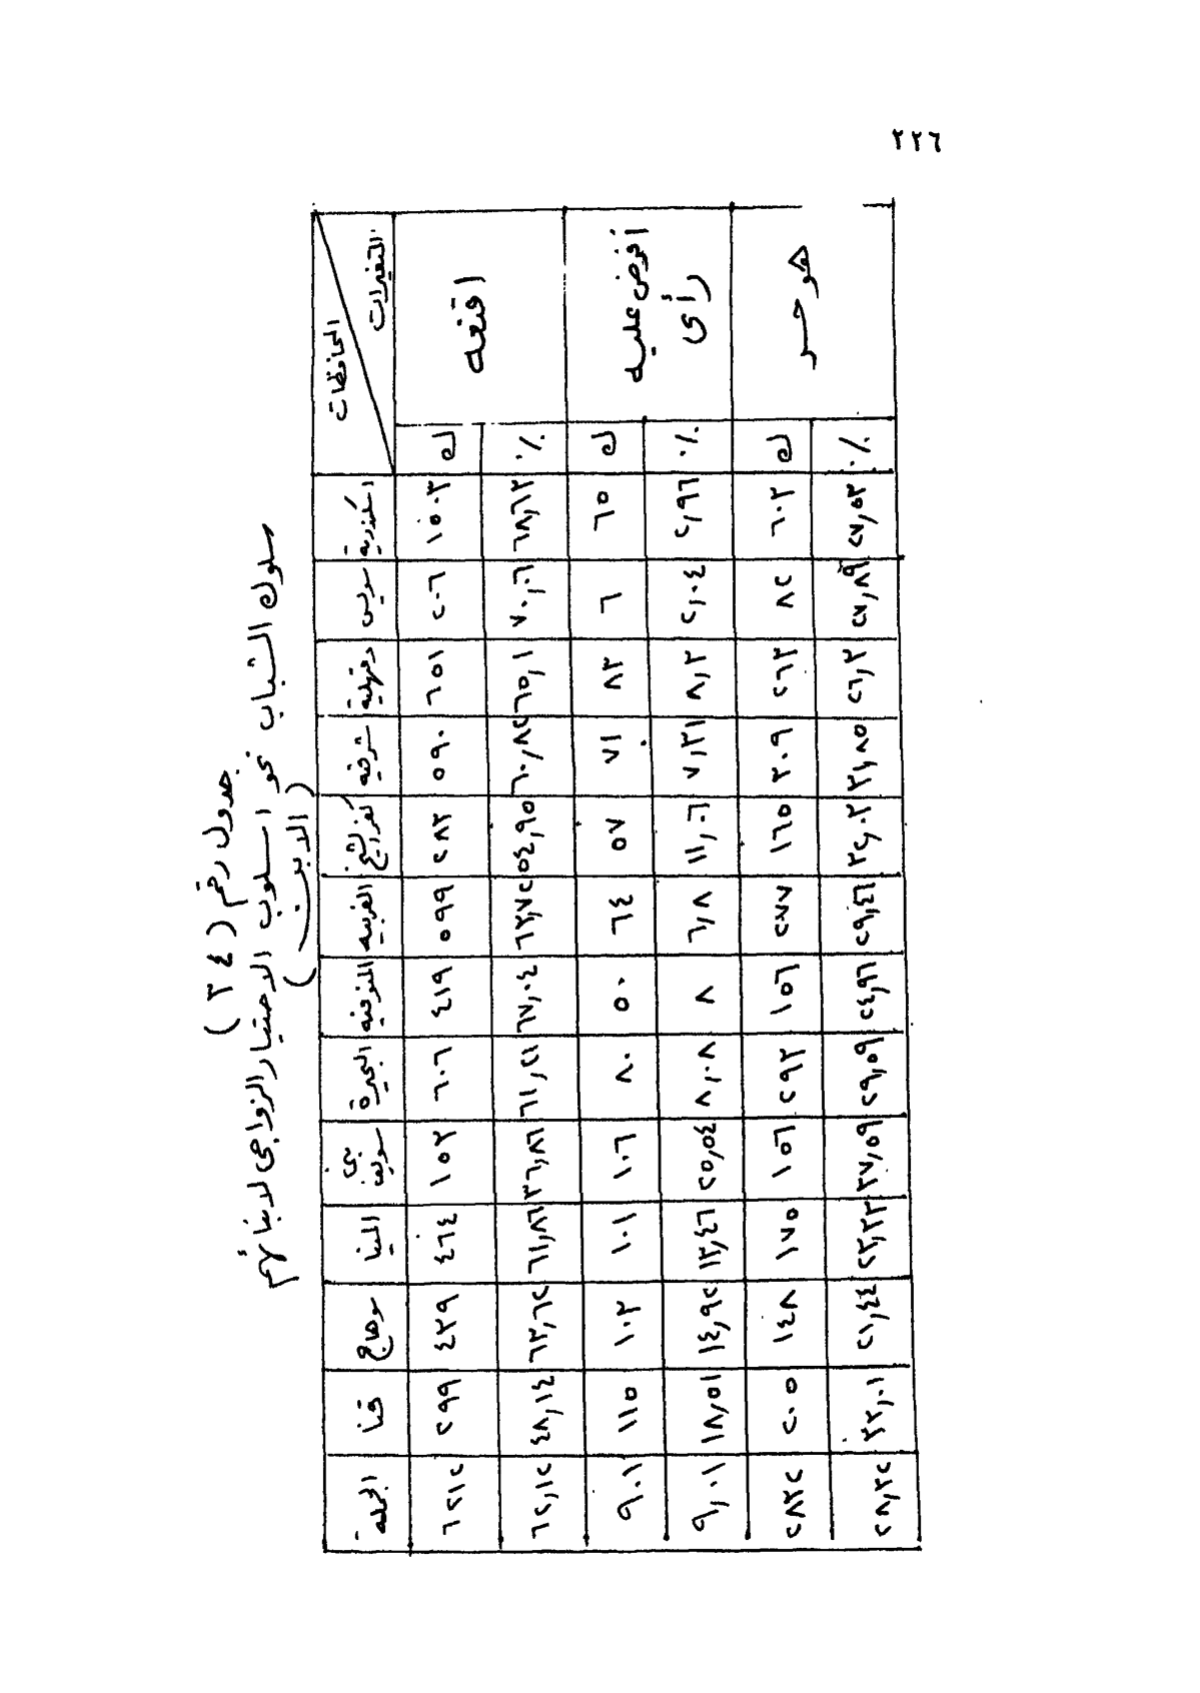 ٢٢٦
جدول رقم ( ٣٤ )
سلوك الشباب نحو اسلوب الاختيار الزواجى لابنائهم
( الابن )
المتغيرات
المحافظات اسكندرية سويس دقهلية شرقية كفر الشيخ الغربية المنوفية البحيرة بنى سويف المنيا سوهاج قنا الجملة
اقنعه
ك ١٥٠٣ ٢٠٦ ٦٥١ ٥٩٠ ٢٨٣ ٥٩٩ ٤١٩ ٦٠٦ ١٥٣ ٤٦٤ ٤٣٩ ٢٩٩ ٦٢١٢
٪ ٦٨,٦٣ ٧٠,٠٦ ٦٥,١ ٦٠,٨٢ ٥٤,٩٥ ٦٣,٧٢ ٦٧,٠٤ ٦١,٢١ ٣٦,٨٦ ٦١,٨٦ ٦٣,٦٢ ٤٨,١٤ ٦٢,١٢
أفرض عليه رأى
ك ٦٥ ٦ ٨٣ ٧١ ٥٧ ٦٤ ٥٠ ٨٠ ١٠٦ ١٠١ ١٠٣ ١١٥ ٩٠١
٪ ٢,٩٦ ٢,٠٤ ٨,٣ ٧,٣١ ١١,٠٦ ٦,٨ ٨ ٨,٠٨ ٢٥,٥٤ ١٣,٤٦ ١٤,٩٢ ١٨,٥١ ٩,٠١
هو حر
ك ٦٠٣ ٨٢ ٢٦٣ ٣٠٩ ١٦٥ ٢٧٧ ١٥٦ ٢٩٣ ١٥٦ ١٧٥ ١٤٨ ٢٠٥ ٢٨٣٢
٪ ٢٧,٥٣ ٢٧,٨٩ ٢٦,٣ ٣١,٨٥ ٣٢,٠٣ ٢٩,٤٦ ٢٤,٩٦ ٢٩,٥٩ ٣٧,٥٩ ٢٣,٣٣ ٢١,٤٤ ٣٣,٠١ ٢٨,٣٢